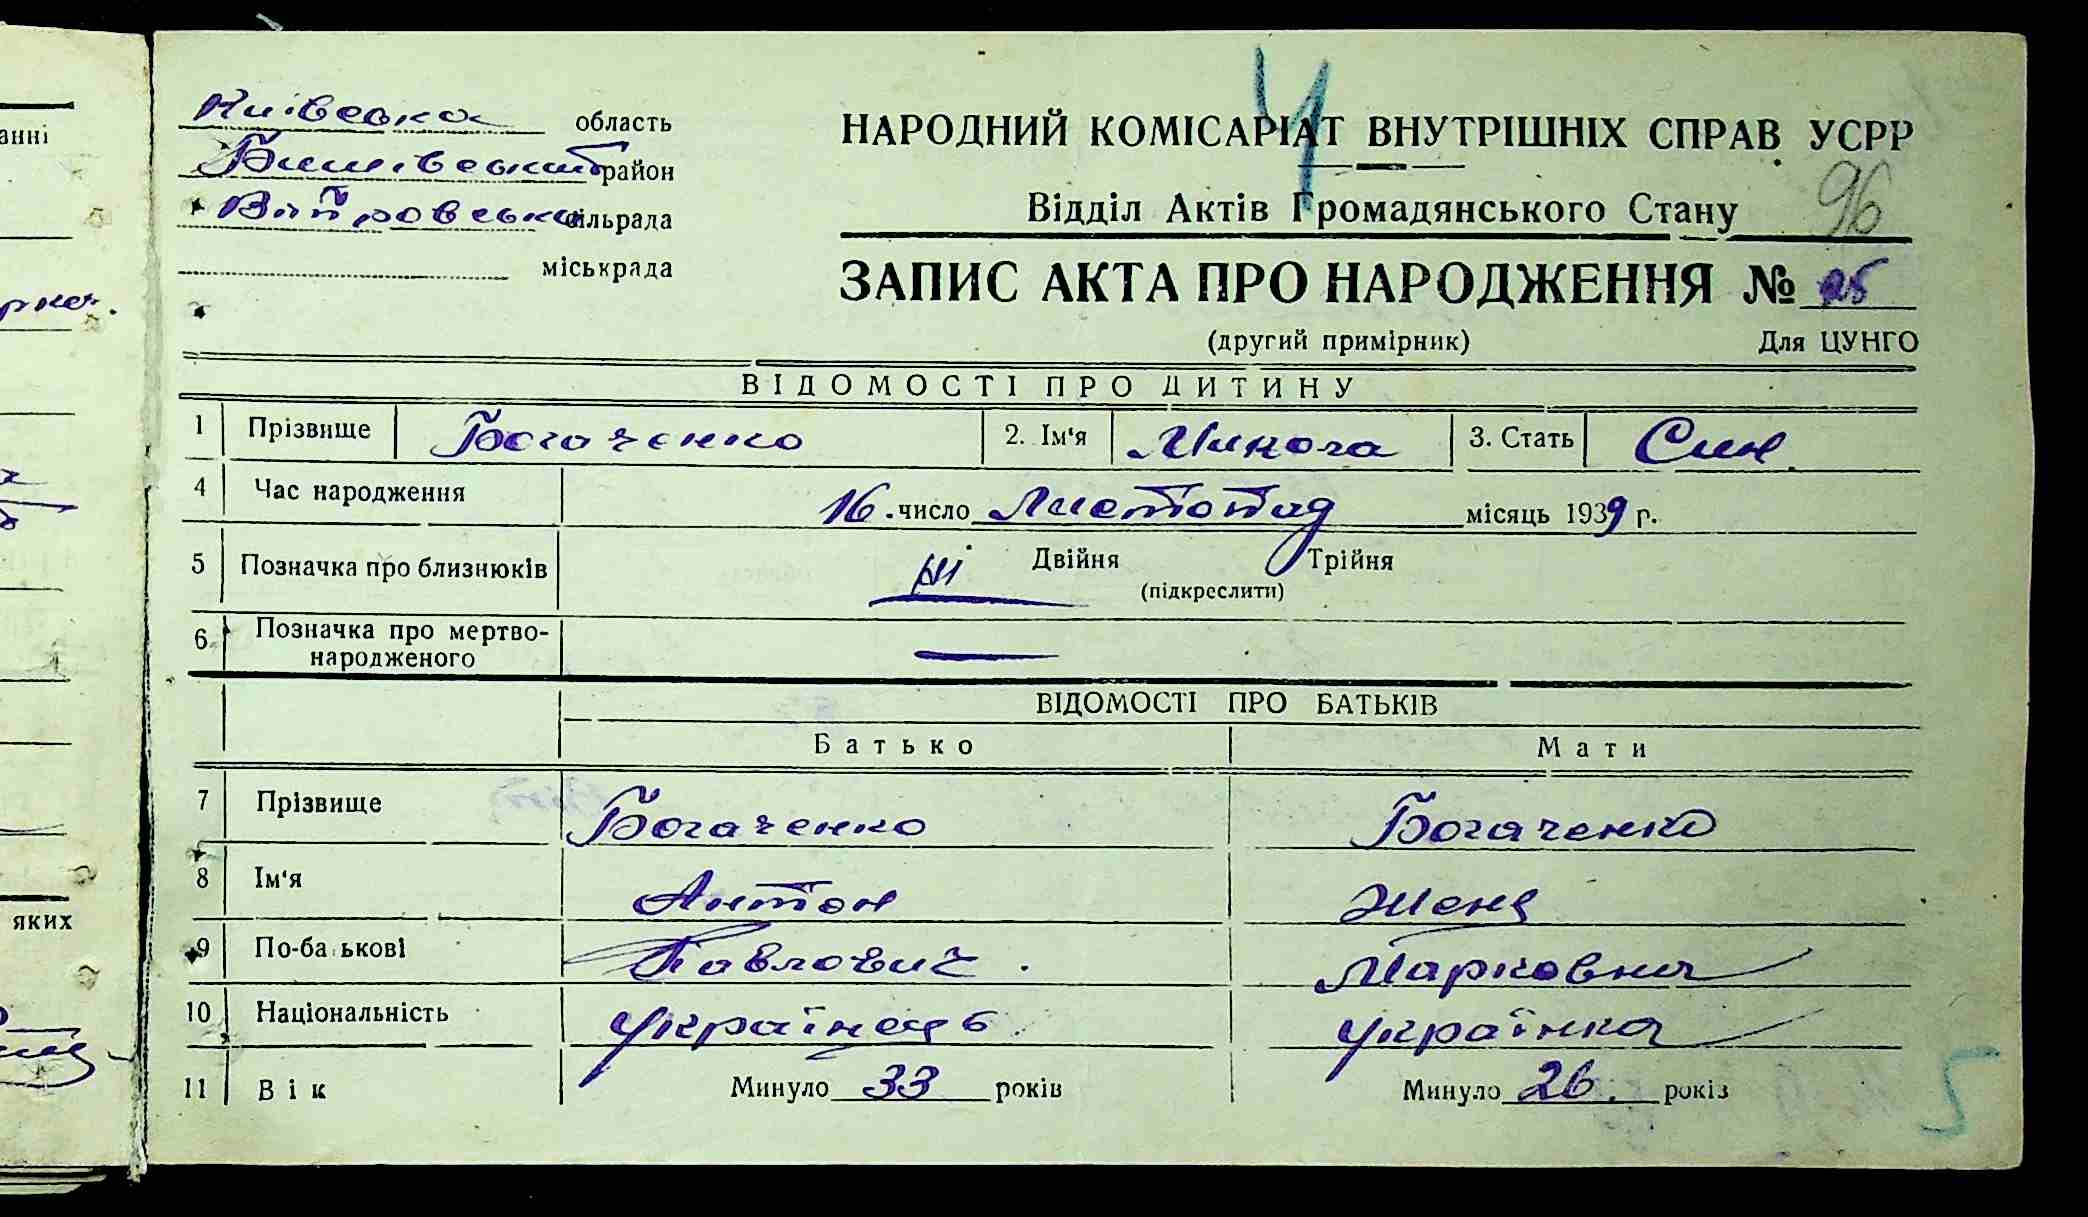 Київська область
Бишівський район
сільрада
міськрада
НАРОДНИЙ КОМІСАРІАТ ВНУТРІШНІХ СПРАВ УСРР
Відділ Актів Громадянського Стану 96
ЗАПИС АКТА ПРО НАРОДЖЕННЯ № 25
(другий примірник) Для ЦУНГО
ВІДОМОСТІ ПРО ДИТИНУ
1 Прізвище Богаченко 2. Ім'я Микола 3. Стать Син
4 Час народження 16 число Листопад місяць 1939 г.
5 Позначка про близнюків ні Двійня Трійня
(підкреслити)
6 Позначка про мертво-
народженого —
ВІДОМОСТІ ПРО БАТЬКІВ
Батько Мати
7 Прізвище Богаченко Богаченко
8 Ім'я Антон Женя
9 По-батькові Павлович. Марковна
10 Національність українець українка
11 Вік Минуло 33 років Минуло 26 років
анні
яких